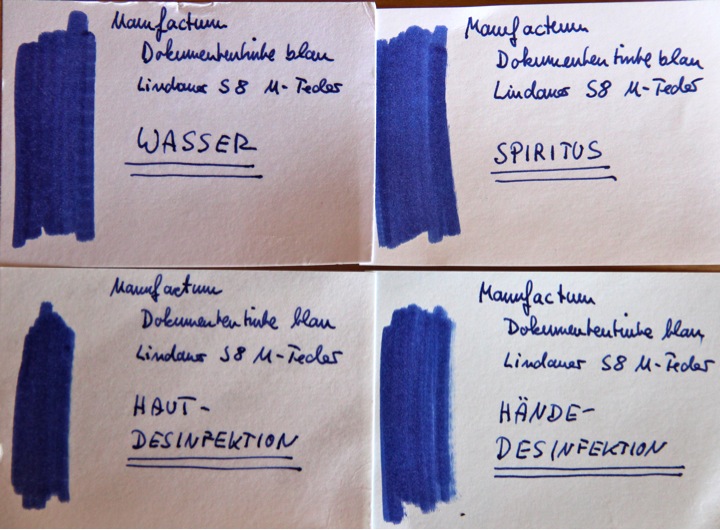 Manufactum
Dokumententinte blau
Lindauer S8 M-Feder
WASSER
Manufactum
Dokumententinte blau
Lindauer S8 M-Feder
SPIRITUS
Manufactum
Dokumententinte blau
Lindauer S8 M-Feder
HAUT-
DESINFEKTION
Manufactum
Dokumententinte blau
Lindauer S8 M-Feder
HÄNDE-
DESINFEKTION